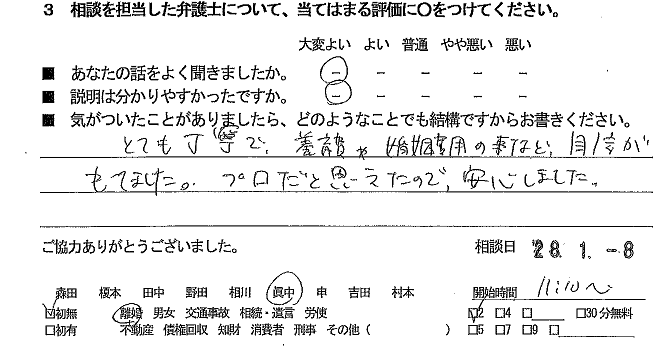 3 相談を担当した弁護士について、当てはまる評価に〇をつけてください。
大変よい よい 普通 やや悪い 悪い
■ あなたの話をよく聞きましたか。 － － － － －
■ 説明は分かりやすかったですか。 － － － － －
■ 気がついたことがありましたら、どのようなことでも結構ですからお書きください。
とても丁寧で、養育費や婚姻費用の事など、自信が
もてました。プロだと思えたので、安心しました。
ご協力ありがとうございました。 相談日 '28. 1. -8
森田 榎本 田中 野田 相川 眞中 申 吉田 村本 開始時間 11:10～
☑初無 離婚 男女 交通事故 相続・遺言 労使 ☑2 □4 □ □30分無料
□初有 不動産 債権回収 知財 消費者 刑事 その他（ ） □5 □7 □9 □